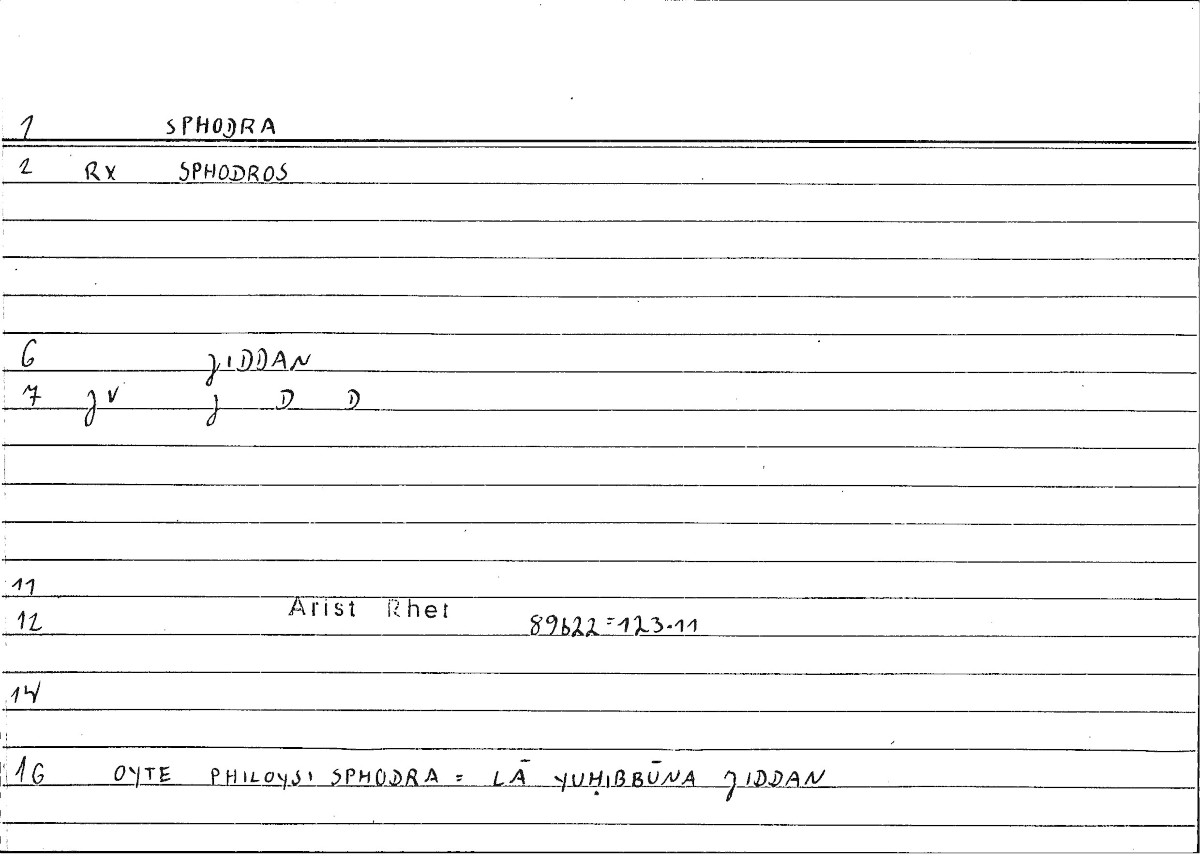 1 SPHODRA
2 RX SPHODROS
6 JIDDAN
7 JV J D D
11
Arist Rhet
12 89b22=123.11
14
16 OYTE PHILOYSI SPHODRA = LĀ YUḤIBBŪNA JIDDAN